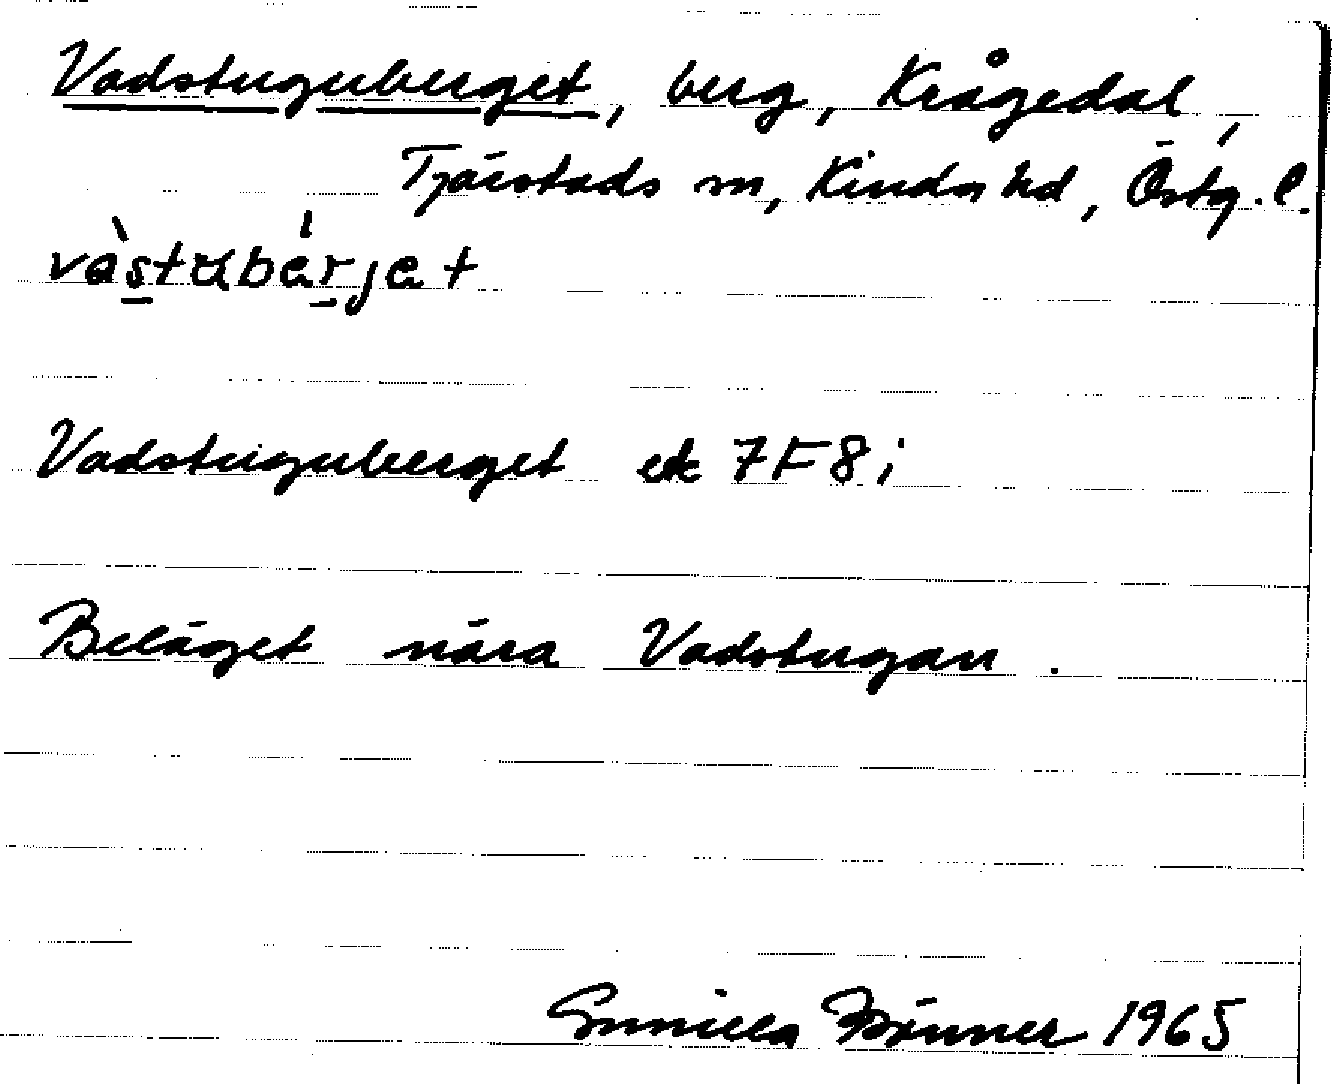 Vadstuguberget, berg, Krågedal,
Tjärstads sn, Kinda hd, Östg. l.
vàstubárjet
Vadstuguberget ek 7F8i
Beläget nära Vadstugan.
Gunilla 1965